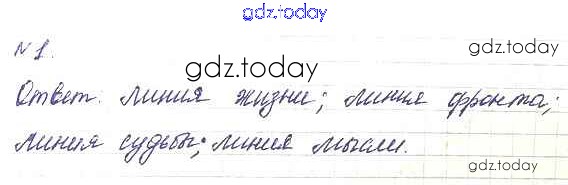 gdz.today
№ 1.
gdz.today
gdz.today
Ответ: линия жизни; линия фронта;
линия судьбы; линия мысли.
gdz.today